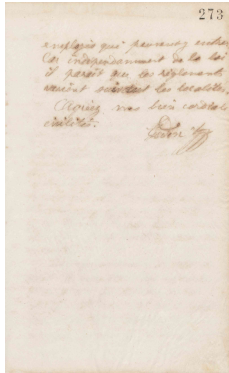 273
employés qui peuvent entrer
car indépendamment de la loi
il paraît que les règlements
varient suivant les localités.
Agréez mes bien cordiales
civilités.